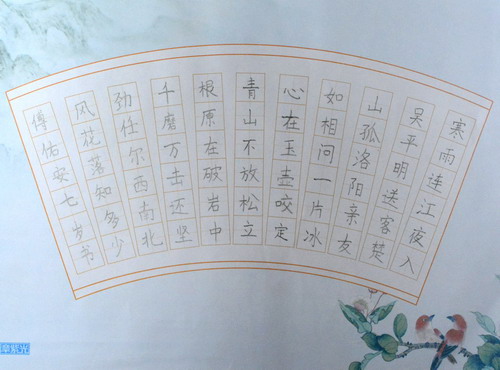 寒雨连江夜入
吴平明送客楚
山孤洛阳亲友
如相问一片冰
心在玉壶咬定
青山不放松立
根原在破岩中
千磨万击还坚
劲任尔西南北
风花落知多少
傅佑安七岁书